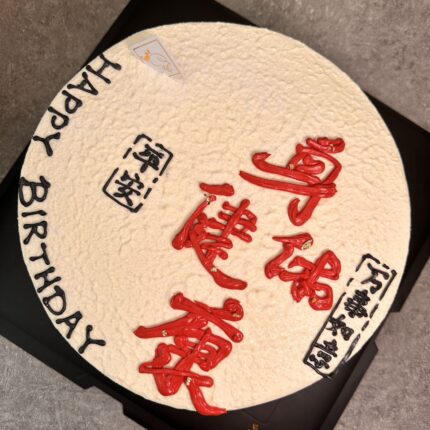 HAPPY BIRTHDAY
平安
身体
健康
万事如意